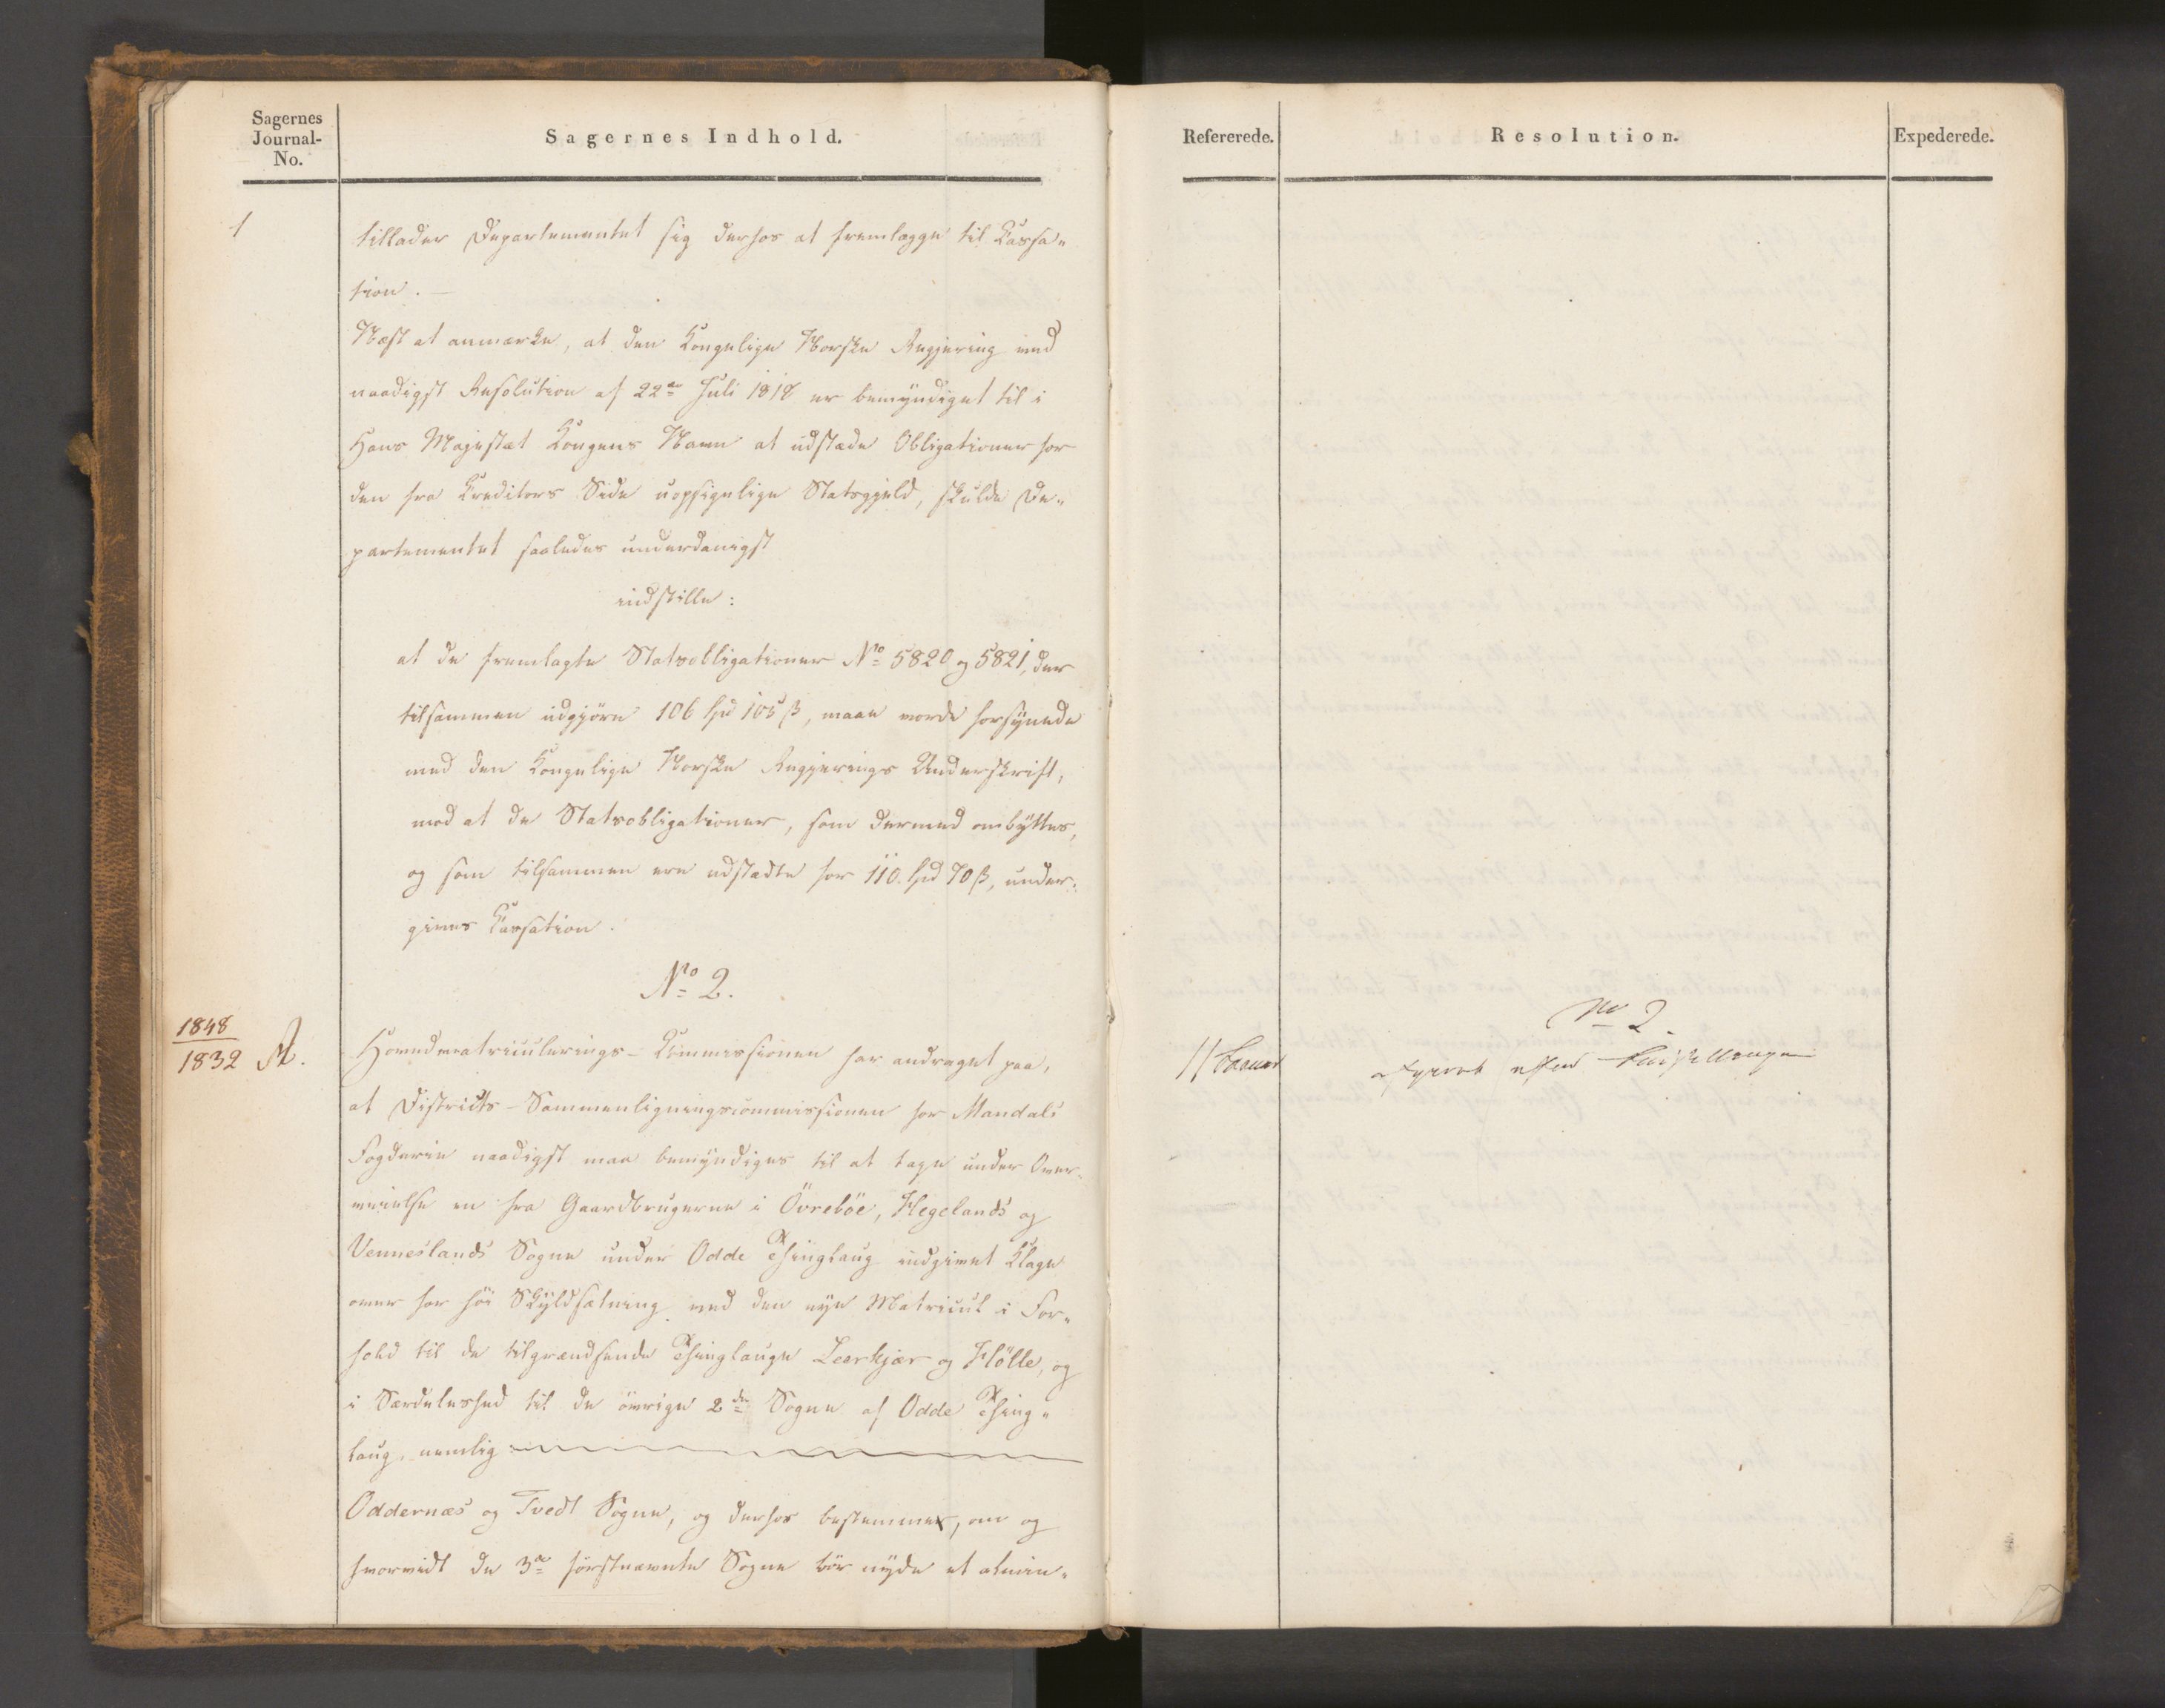 Sagernes
Journal-
No.
Sagernes Indhold.
1
tillader Departementet sig derhos at fremlægge til Cassa„
tion. —
Næst at anmærke, at den Kongelige Norske Regjering ved
naadigst Resolution af 22de Juli 1818 er bemyndiget til i
Hans Majestæt Kongens Navn at udstæde Obligationer for
den fra Creditors Side uopsigelige Statsgjeld, skulde De„
partementet saaledes underdanigst
indstille:
at de fremlagte Statsobligationer No 5820 og 5821, der
tilsammen udgjöre 106 Spd 105 ß, maae vorde forsynede
med den Kongelige Norske Regjerings Underskrift,
mod at de Statsobligationer, som dermed ombyttes,
og som tilsammen ere udstædte for 110. Spd 70 ß, under„
gives Cassation.
No 2.
1848
1832 A.
Hovedmatriculerings-Commissionen har andraget paa,
at Districts-Sammenligningscommissionen for Mandals
Fogderie naadigst maa bemyndiges til at tage under Over„
veielse en fra Gaardbrugerne i Övreböe, Hegelands og
Venneslands Sogne under Odde Thinglaug indgivet Klage
over for höi Skyldsætning ved den nye Matricul i For„
hold til de tilgrændsende Thinglauge Leerkjær og Hölle, og
i Særdeleshed til de övrige 2de Sogne af Odde Thing„
laug, nemlig
Oddernæs og Tvedt Sogne, og derhos bestemme, om og
hvorvidt de 3de förstnævnte Sogne bör nyde et almin„
Refererede.
Resolution.
Expederede.
No 2.
11
efter Indstillingen